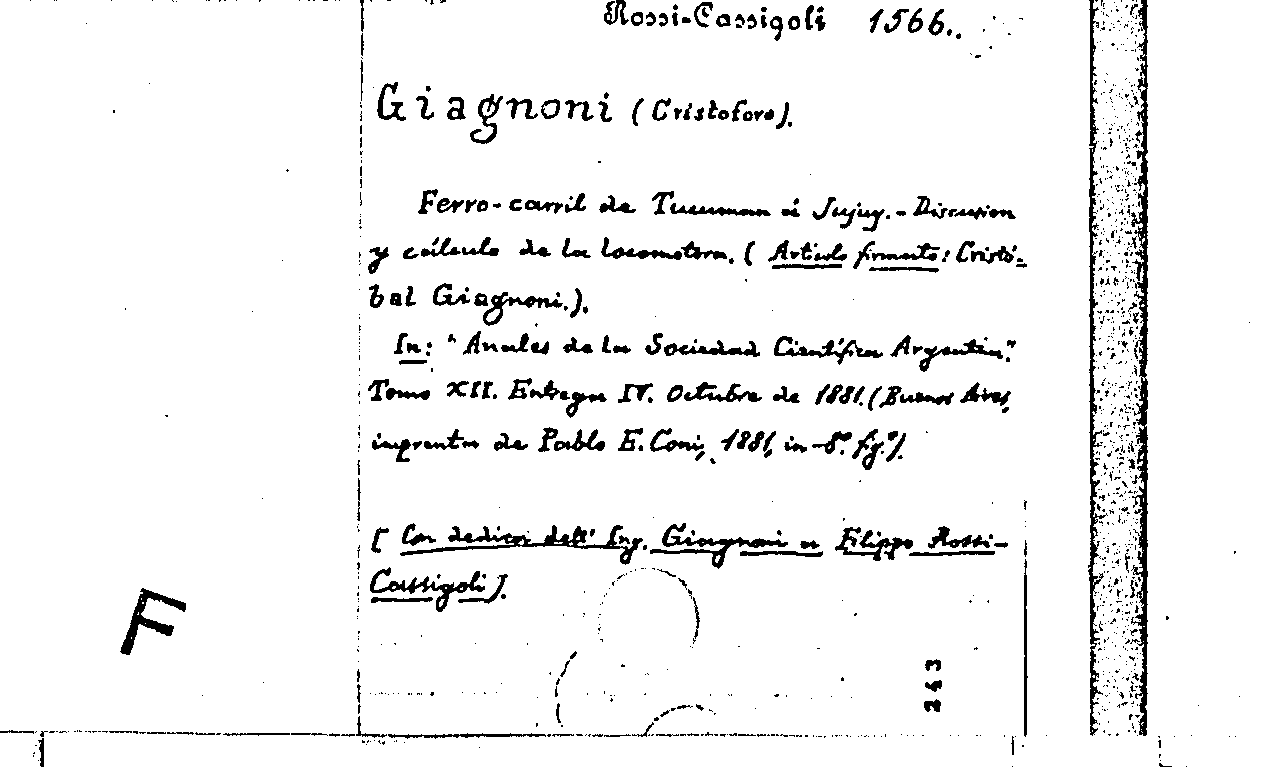 Rossi-Cassigoli 1566..
Giagnoni (Cristoforo).
Ferro-carril de Tucuman á Jujuy. - Discusion
y cálculo de la locomotora. ( Articulo firmato: Cristó-
bal Giagnoni.).
In: "Anales de la Sociedad Científica Argentina".
Tomo XII. Entrega IV. Octubre de 1881. (Buenos Aires,
imprenta de Pablo E. Coni, 1881, in-8°. fig°).
[ Con dedica dell' Ing. Giagnoni a Filippo Rossi-
Cassigoli].
F
243